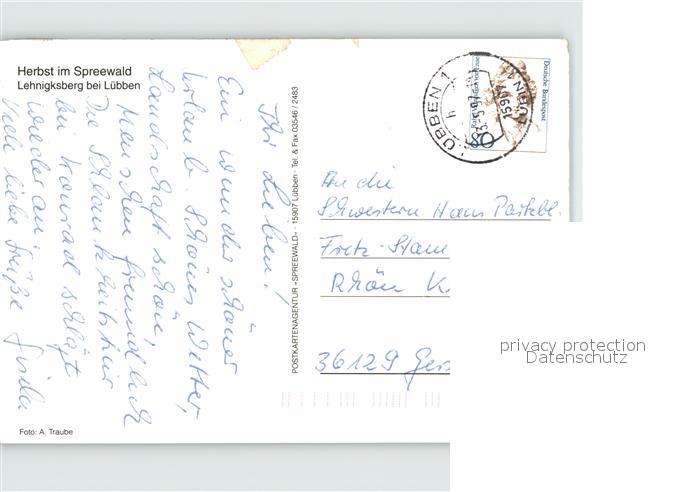 Herbst im Spreewald
Lehnigksberg bei Lübben
Ihr Lieben!
Ein wunderschöner
Urlaub. Schönes Wetter,
Landschaft schön,
Menschen freundlich
Die Schlankheitskur
bei Konrad schlägt
wieder an.
Viele liebe Grüße Gisela
Foto: A. Traube
POSTKARTENAGENTUR «SPREEWALD» · 15907 Lübben · Tel. & Fax 03546 / 2483
LÜBBEN 1
15907
Deutsche Bundespost
80
An die
Schwestern Haus
Fritz-Stam
Rhön K
36129 Gers
privacy protection
Datenschutz